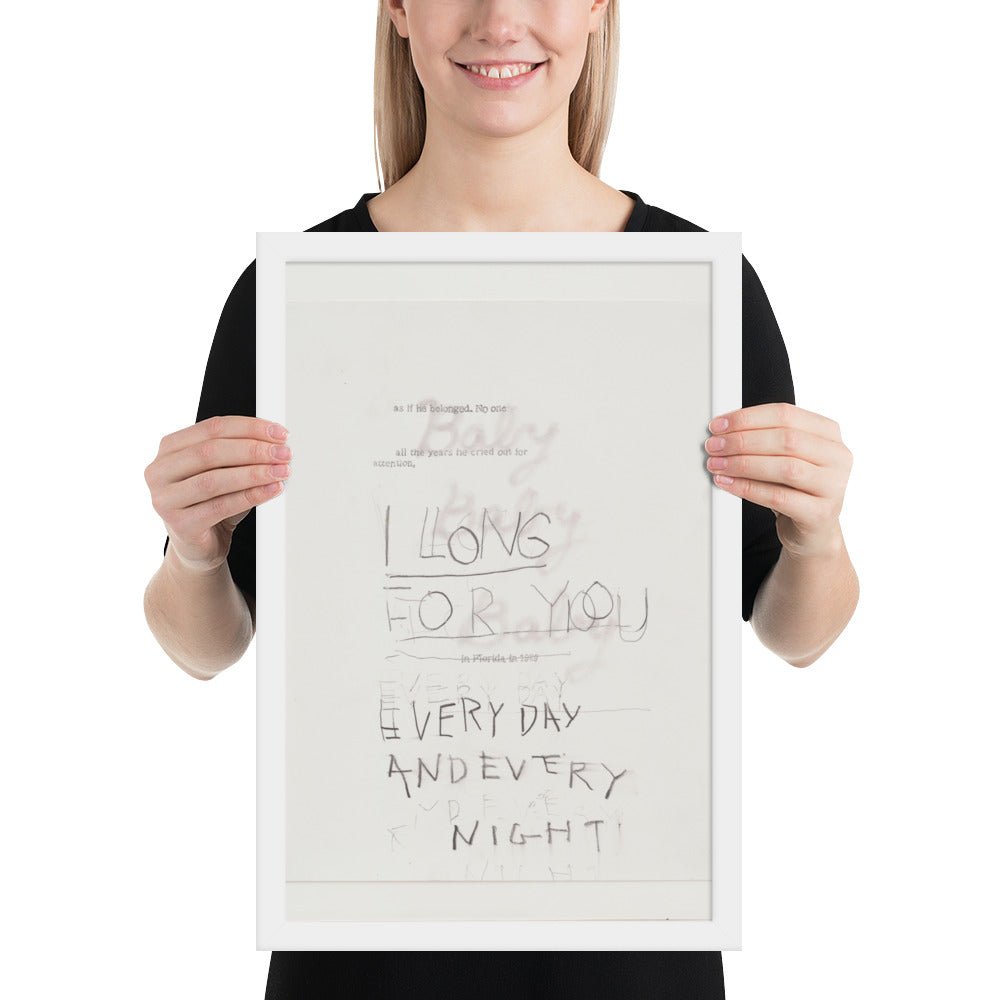 as if he belonged. No one
Baby
all the years he cried out for
attention,
Baby
I LLONG
FOR YOU
Baby
in Florida in 1989
EVERY DAY
EVERY DAY
AND EVERY
ND EVERY
NIGHT
NIGHT